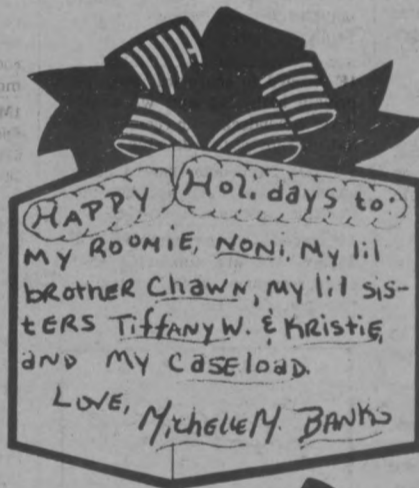 HAPPY Holidays to:
MY ROOMIE, NONI, My lil
brother Chawn, my lil sis-
tERS TiffANY W. & KRistiE,
AND MY CASELOAD.
LOVE, MichelleM. BANKS